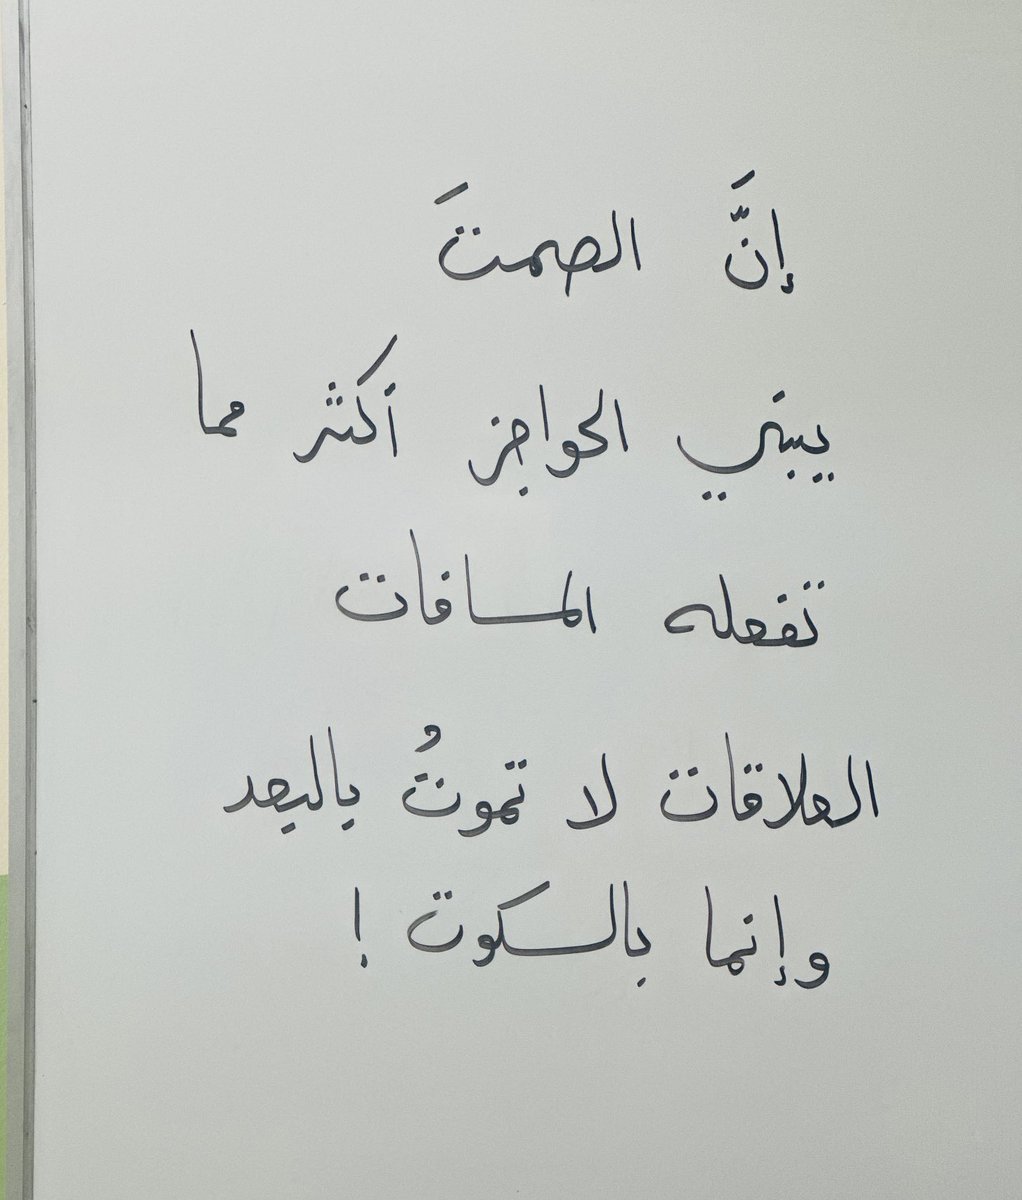 إنَّ الصمتَ
يبني الحواجز أكثر مما
تفعله المسافات
العلاقات لا تموتُ بالبعد
وإنما بالسكوت !